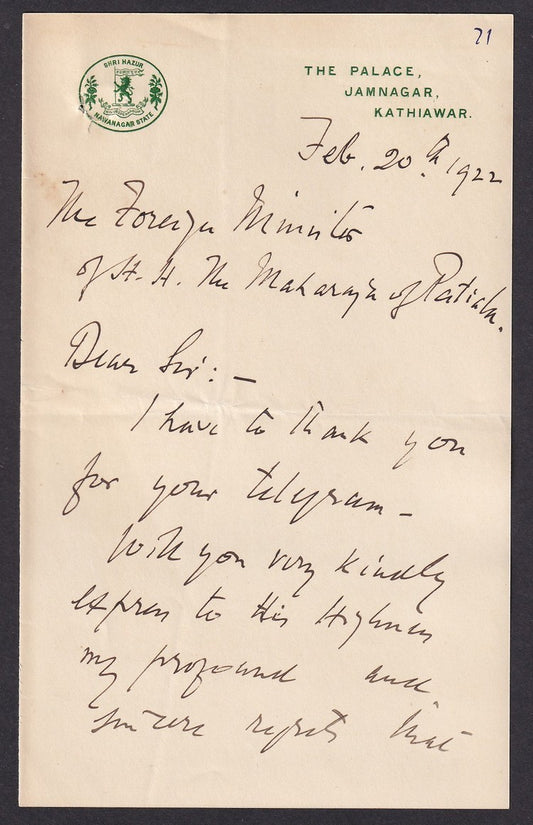 21
SHRI HAZUR
NAWANAGAR STATE
THE PALACE,
JAMNAGAR,
KATHIAWAR.
Feb. 20th 1922
The Foreign Minister
of H. H. The Maharaja of Patiala.
Dear Sir: —
I have to thank you
for your telegram —
Will you very kindly
express to His Highness
my profound and
sincere regrets that